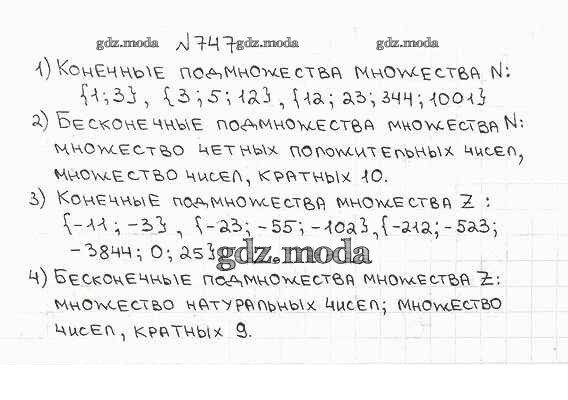 gdz.moda №747 gdz.moda gdz.moda
1) Конечные подмножества множества N:
{1; 3}, {3; 5; 12}, {12; 23; 344; 1001}
2) Бесконечные подмножества множества N:
множество четных положительных чисел,
множество чисел, кратных 10.
3) Конечные подмножества множества Z:
{-11; -3}, {-23; -55; -102}, {-212; -523;
-3844; 0; 25} gdz.moda
4) Бесконечные подмножества множества Z:
множество натуральных чисел; множество
чисел, кратных 9.